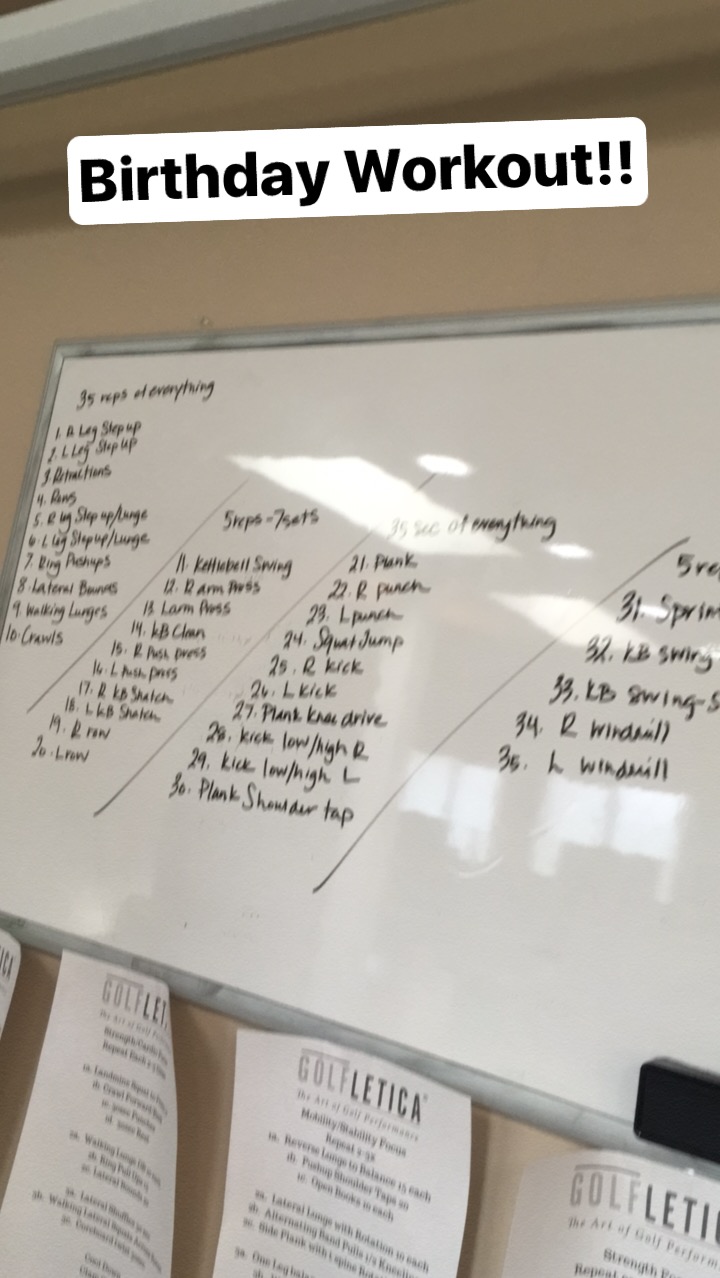 Birthday Workout!!
35 reps of everything
1. R Leg Step up
2. L Leg Step up
3. Retractions
4. Rows
5. R leg Step up/Lunge
6. L leg Step up/Lunge
7. Ring Pushups
8. Lateral Bounds
9. Walking Lunges
10. Crawls
5 reps - 7 sets
11. Kettlebell Swing
12. R arm Press
13. L arm Press
14. KB Clean
15. R Push press
16. L Push press
17. R KB Snatch
18. L KB Snatch
19. R row
20. L row
35 sec of everything
21. Plank
22. R punch
23. L punch
24. Squat Jump
25. R kick
26. L kick
27. Plank knee drive
28. kick low/high R
29. kick low/high L
30. Plank Shoulder tap
5 re
31. Sprin
32. KB swing
33. KB swing-S
34. R windmill
35. L windmill
GOLFLET
The Art of Golf
Strength/Cardio
Repeat Each
1b. Crawl Forward
2a. Walking Lunge
2b. Ring Pull Ups
2c. Lateral Bounds
3a. Lateral Shuffles
3b. Walking Lateral
Cool Down
GOLFLETICA
The Art of Golf Performance
Mobility/Stability Focus
Repeat 2-3x
1a. Reverse Lunge to Balance 15 each
1b. Pushup Shoulder Taps 20
1c. Open Books 10 each
2a. Lateral Lunge with Rotation 10 each
2b. Alternating Band Pulls 1/2 Kneeling
2c. Side Plank with
3a. One Leg
GOLFLETI
The Art of Golf Perform
Strength F
Repeat